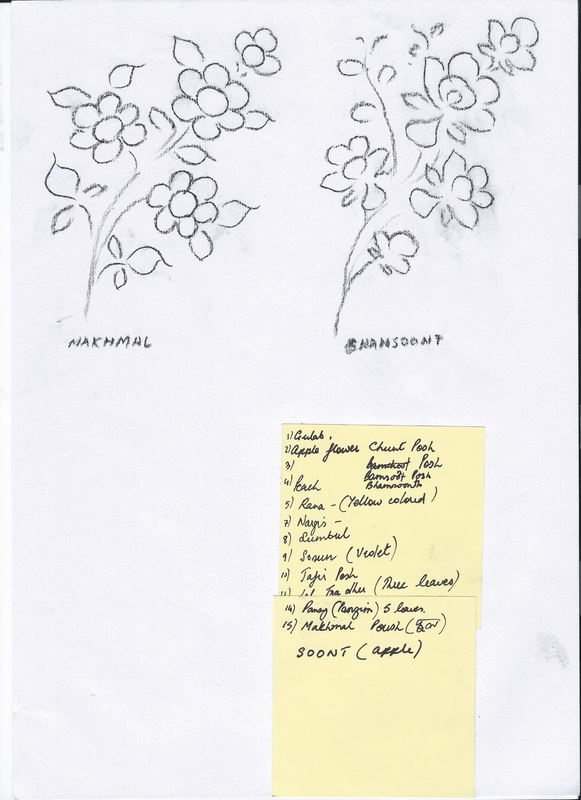 MAKHMAL
BHAMSOONT
1) Gulab.
2) Apple flower Chunt Posh
3) Posh
4) Peach Bamsoot Posh
Bhamsoonth
5) Rana - (Yellow colored)
7) Nargis -
8) Sumbul
9) Sosun (Violet)
10) Tajri Posh
(Three leaves)
14) Panzy (Panzim) 5 leaves.
15) Makhmal Poush
SOONT (apple)